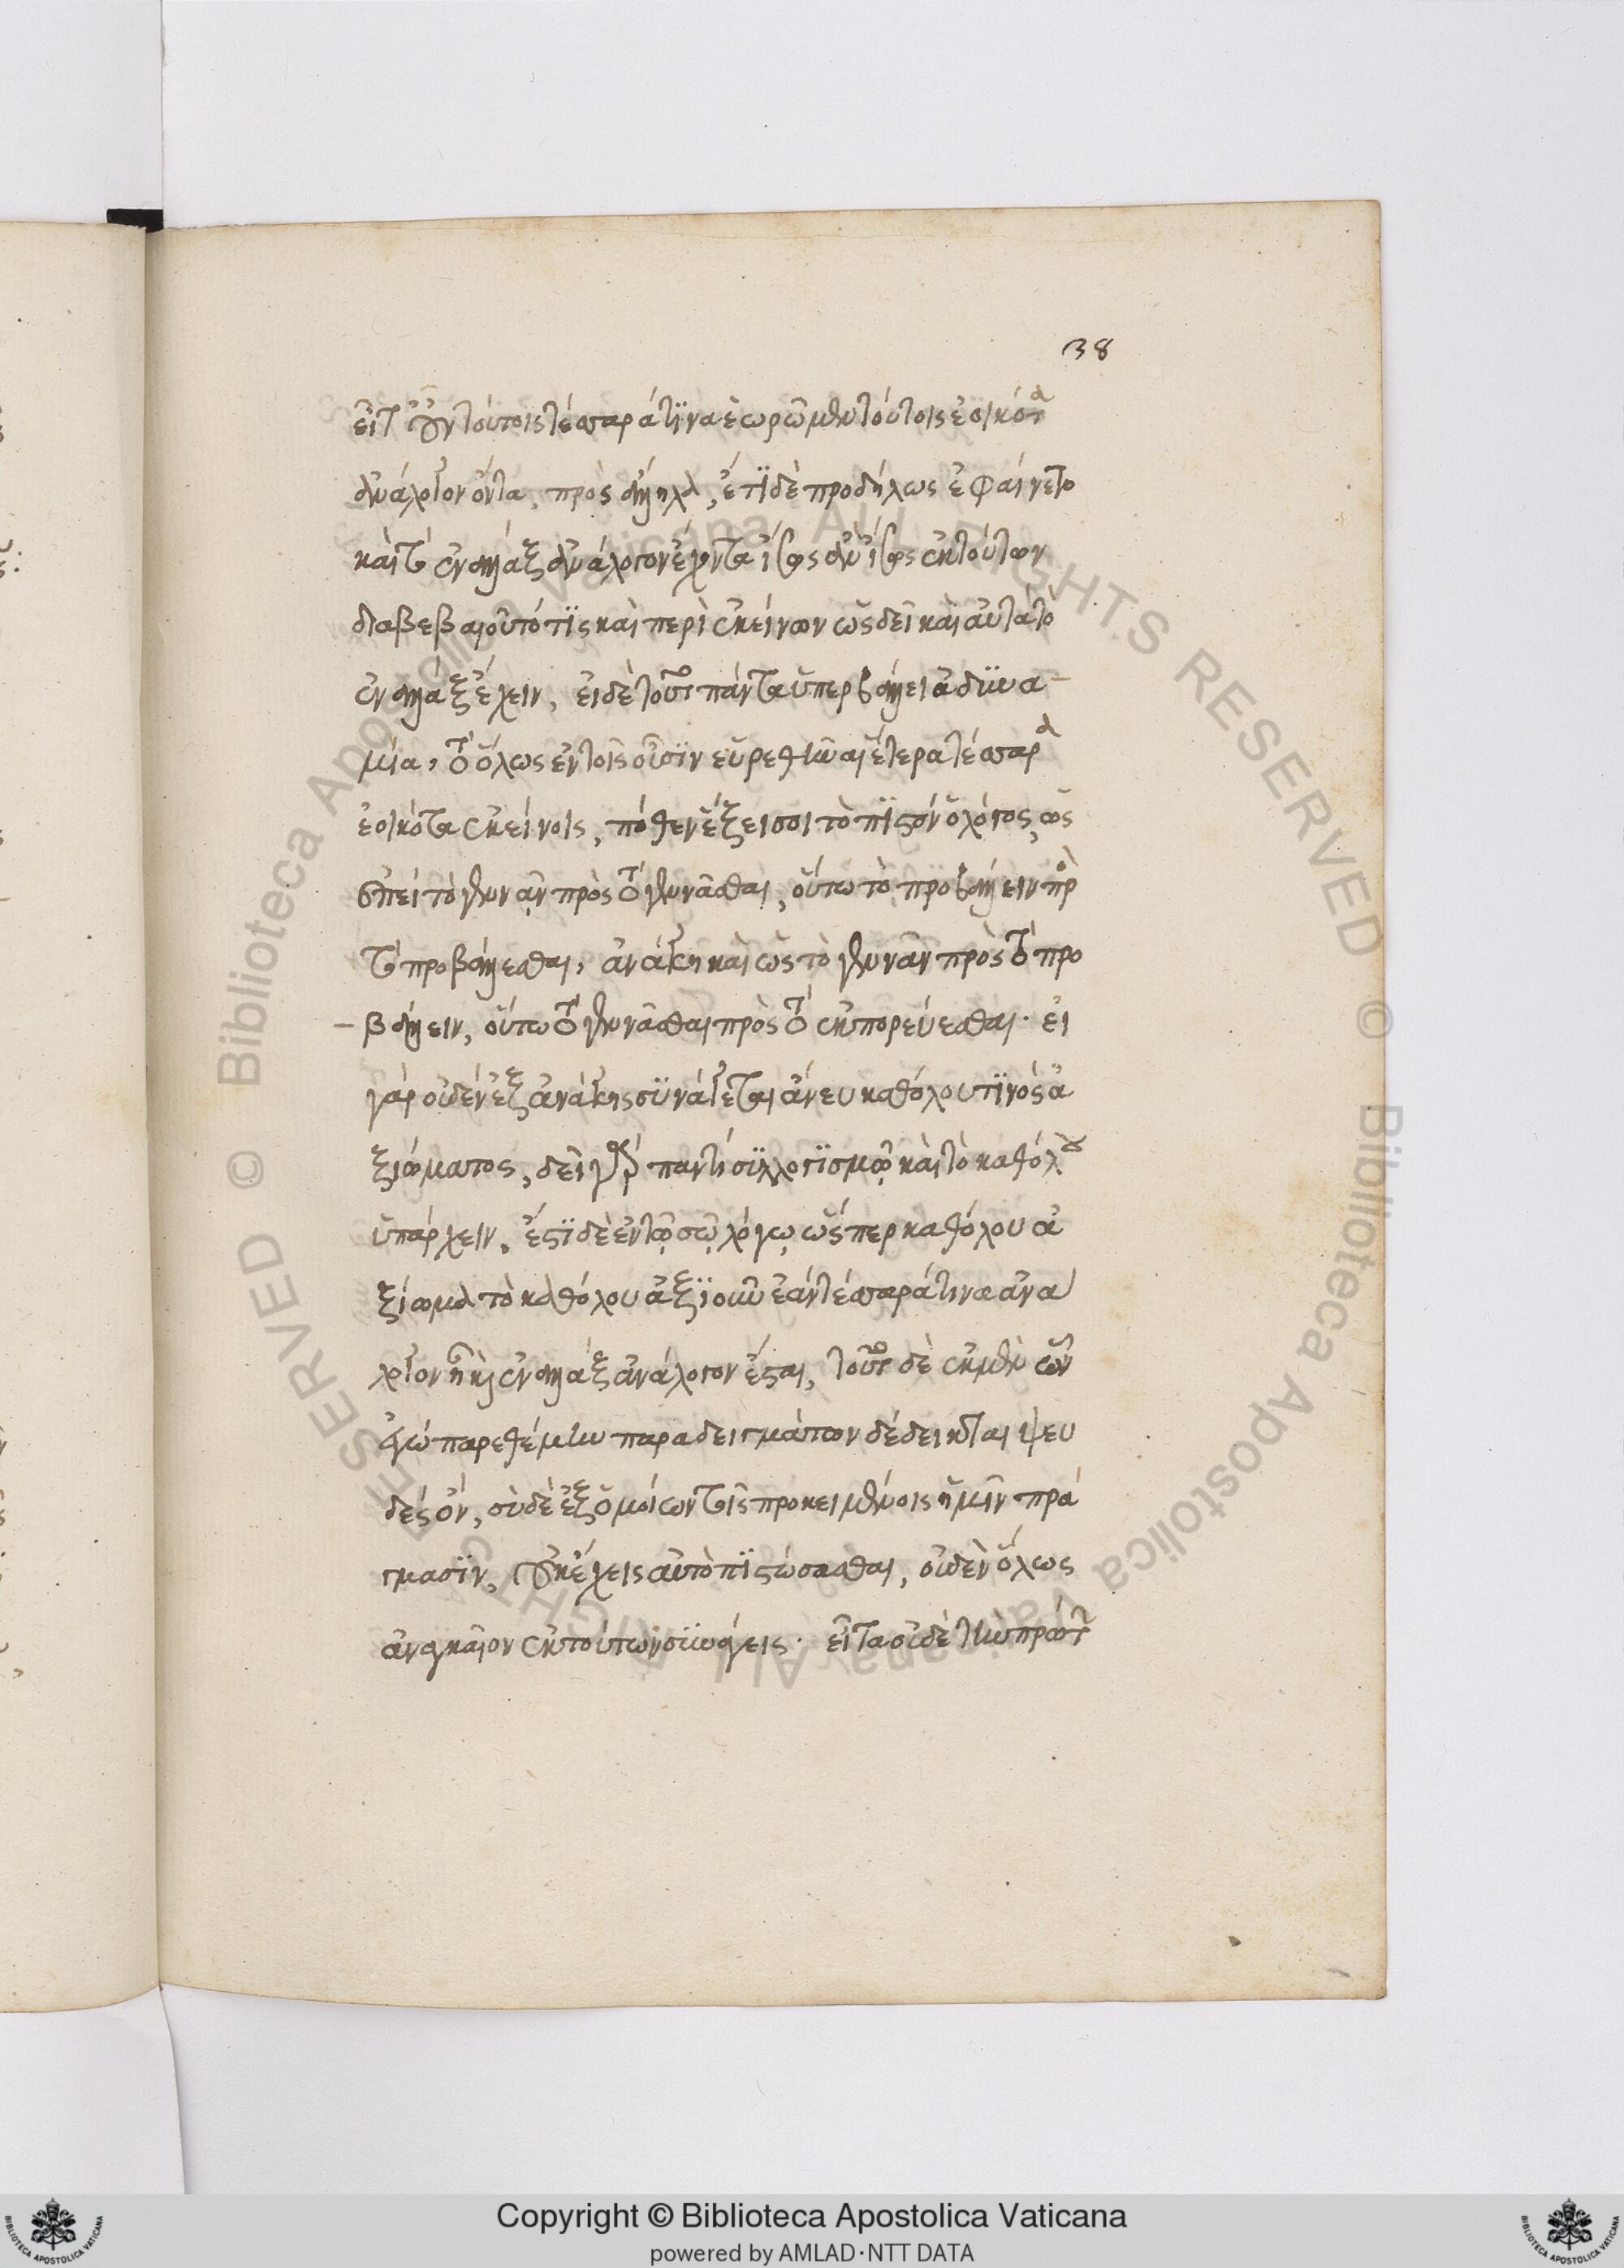 38
εἶτ' οὖν τούτοις τέσσαρά τινα ἑωρῶμεν τούτοις ἐοικότα
ἀνάλογον ὄντα πρὸς ἄλληλα, ἔτι δὲ προδήλως ἐφαίνετο
καὶ τὸ ἐναλλὰξ ἀνάλογον ἔχοντα ἴσως ἂν ἴσως ἐκ τούτων
διαβεβαιοῦτό τις καὶ περὶ ἐκείνων ὡς δεῖ καὶ αὐτὰ τὸ
ἐναλλὰξ ἔχειν, εἰ δὲ τοῦτο πάντα ὑπερβάλλει ἀδυνα-
μία, τὸ ὅλως ἐν τοῖς οὖσιν εὑρεθῆναι ἕτερα τέσσαρα
ἐοικότα ἐκείνοις, πόθεν ἕξει σοι τὸ πιστὸν ὁ λόγος, ὡς
ἐπεὶ τὸ γεννᾶν πρὸς τὸ γεννᾶσθαι, οὕτω τὸ προβάλλειν πρὸς
τὸ προβάλλεσθαι, ἀνάγκη καὶ ὡς τὸ γεννᾶν πρὸς τὸ προ
-βάλλειν, οὕτω τὸ γεννᾶσθαι πρὸς τὸ ἐκπορεύεσθαι· εἰ
γὰρ οὐδὲν ἐξ ἀνάγκης συνάγεται ἄνευ καθόλου τινὸς ἀ
ξιώματος, δεῖ γὰρ παντὶ συλλογισμῷ καὶ τὸ καθόλου
ὑπάρχειν, ἔστι δὲ ἐν τῷ σῷ λόγῳ ὥσπερ καθόλου ἀ
ξίωμα τὸ καθόλου ἀξιοῦν ἐὰν τέσσαρά τινα ἀνά
λογον ᾖ καὶ ἐναλλὰξ ἀνάλογον ἔσται, τοῦτο δὲ ἐκ μὲν ὧν
ἐγὼ παρεθέμην παραδειγμάτων δέδεικται ψευ
δὲς ὄν, σὺ δὲ ἐξ ὁμοίων τοῖς προκειμένοις ἡμῖν πρά
γμασιν, οὐκ ἔχεις αὐτὸ πιστώσασθαι, οὐδὲν ὅλως
ἀναγκαῖον ἐκ τούτων συνάγεις· εἶτα οὐδὲ τὴν πρώτην
Copyright © Biblioteca Apostolica Vaticana
powered by AMLAD·NTT DATA